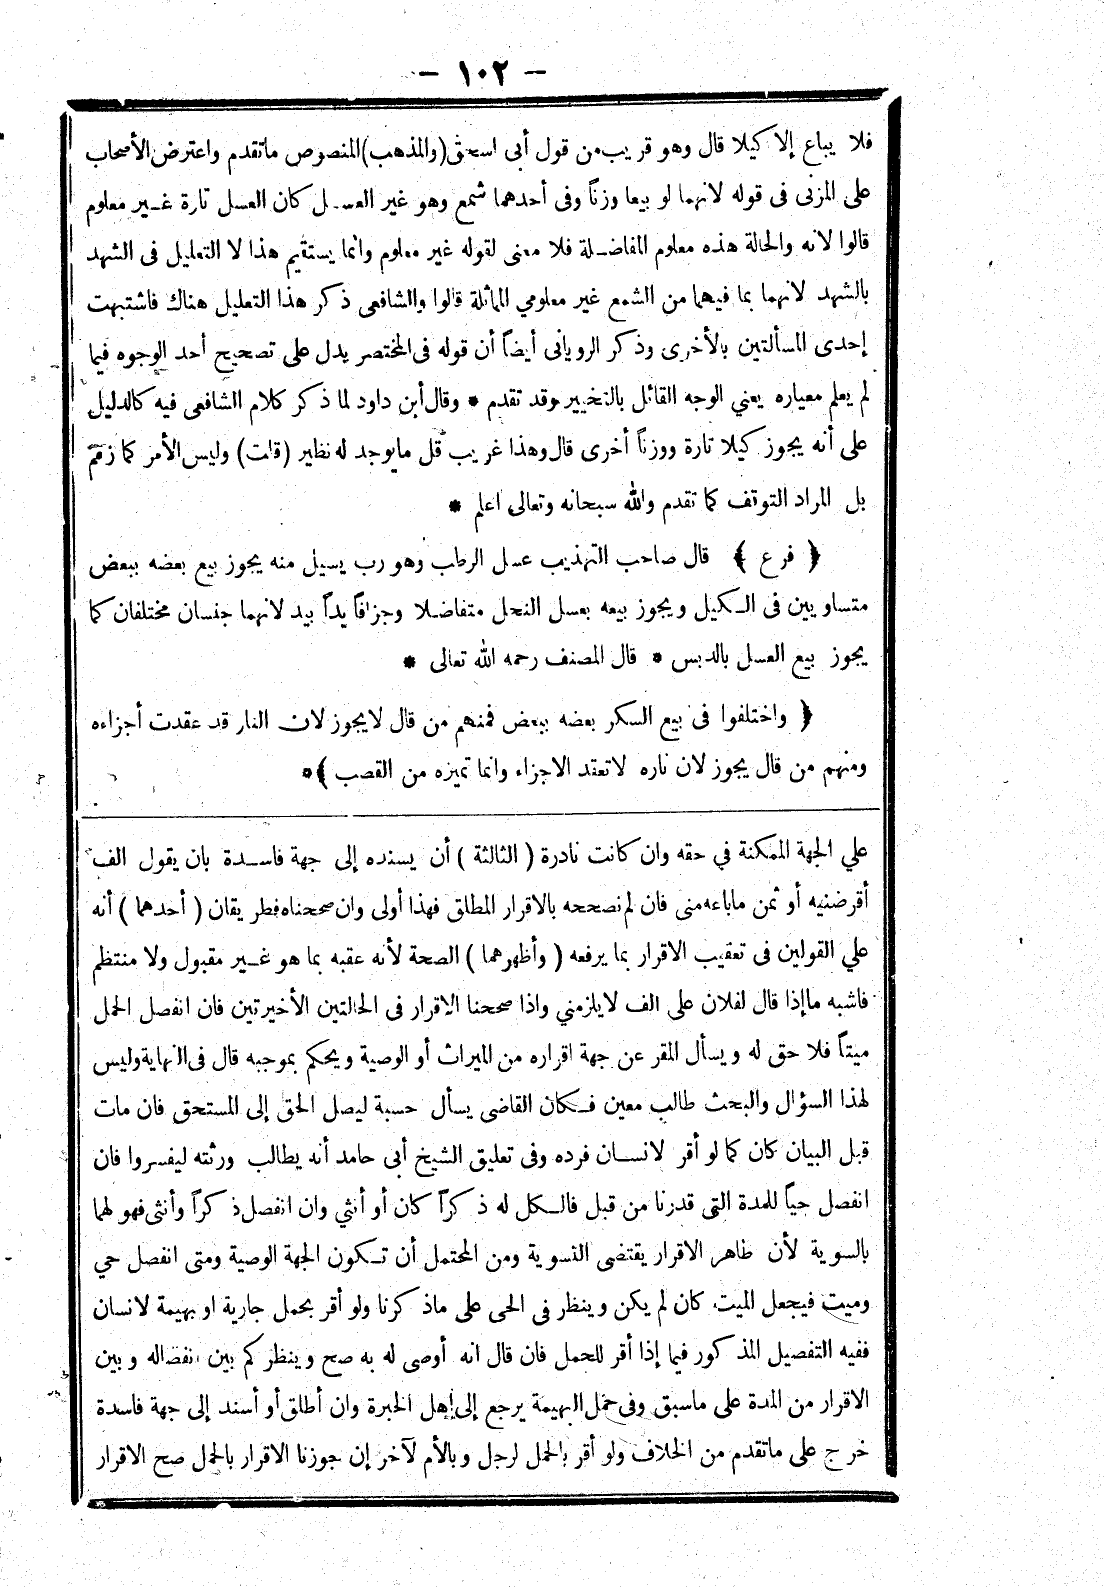 - ١٠٢ -
فلا يباع إلا كيلا قال وهو قريب من قول أبى اسحق (والمذهب) المنصوص ماتقدم واعترض الأصحاب
على المزنى فى قوله لانهما لو بيعا وزناً وفى أحدهما شمع وهو غير العسل كان العسل تارة غير معلوم
قالوا لانه والحالة هذه معلوم المفاضلة فلا معنى لقوله غير معلوم وانما يستقيم هذا لا التعليل فى الشهد
بالشهد لانهما بما فيهما من الشمع غير معلومي المماثلة قالوا والشافعى ذكر هذا التعليل هناك فاشتبهت
إحدى المسألتين بالأخرى وذكر الرويانى أيضاً أن قوله فى المختصر يدل على تصحيح أحد الوجوه فيما
لم يعلم معياره يعني الوجه القائل بالتخيير وقد تقدم * وقال أبن داود لما ذكر كلام الشافعى فيه كالدليل
على أنه يجوز كيلا تارة ووزناً أخرى قال وهذا غريب قل مايوجد له نظير (قلت) وليس الأمر كما زعم
بل المراد التوقف كما تقدم والله سبحانه وتعالى اعلم *
﴿ فرع ﴾ قال صاحب التهذيب عسل الرطب وهو رب يسيل منه يجوز بيع بعضه ببعض
متساويين فى الكيل ويجوز بيعه بعسل النحل متفاضلا وجزافاً يداً بيد لانهما جنسان مختلفان كما
يجوز بيع العسل بالدبس * قال المصنف رحمه الله تعالى *
﴿ واختلفوا فى بيع السكر بعضه ببعض فمنهم من قال لايجوز لان النار قد عقدت أجزاءه
ومنهم من قال يجوز لان ناره لاتعقد الاجزاء وانما تميزه من القصب ﴾*
علي الجهة الممكنة في حقه وان كانت نادرة ( الثالثة ) أن يسنده إلى جهة فاسدة بان يقول الف
أقرضنيه أو ثمن ماباعه منى فان لم نصححه بالاقرار المطلق فهذا أولى وان صححناه فطريقان ( أحدهما ) أنه
علي القولين فى تعقيب الاقرار بما يرفعه ( وأظهرهما ) الصحة لأنه عقبه بما هو غير مقبول ولا منتظم
فاشبه ماإذا قال لفلان على الف لايلزمني واذا صححنا الاقرار فى الحالتين الأخيرتين فان انفصل الحمل
ميتاً فلا حق له ويسأل المقر عن جهة اقراره من الميراث أو الوصية ويحكم بموجبه قال فى النهاية وليس
لهذا السؤال والبحث طالب معين فكان القاضى يسأل حسبة ليصل الحق إلى المستحق فان مات
قبل البيان كان كما لو أقر لانسان فرده وفى تعليق الشيخ أبى حامد أنه يطالب ورثته ليفسروا فان
انفصل حياً للمدة التى قدرنا من قبل فالكل له ذكراً كان أو أنثي وان انفصل ذكراً وأنثى فهو لهما
بالسوية لأن ظاهر الاقرار يقتضى التسوية ومن المحتمل أن تكون الجهة الوصية ومتى انفصل حي
وميت فيجعل الميت كان لم يكن وينظر فى الحى على ماذكرنا ولو أقر بحمل جارية او بهيمة لانسان
ففيه التفصيل المذكور فيما إذا أقر للحمل فان قال انه أوصى له به صح وينظر كم بين انفصاله وبين
الاقرار من المدة على ماسبق وفى حمل البهيمة يرجع إلى إهل الخبرة وان أطلق أو أسند إلى جهة فاسدة
خرج على ماتقدم من الخلاف ولو أقر بالحمل لرجل وبالأم لآخر إن جوزنا الاقرار بالحمل صح الاقرار